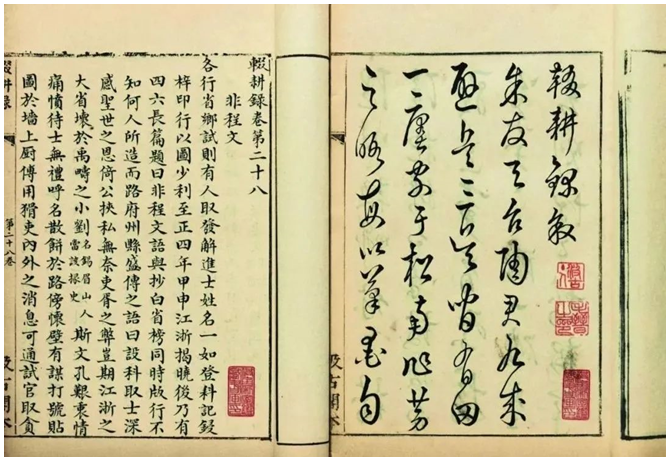 輟耕錄敘
余友天台陶君九成
避兵三吳間有田
一廛家于松南作勞
之暇每以筆墨自
輟耕錄卷第二十八
非程文
各行省鄉試則有人取發解進士姓名一如登科記鋟
梓印行以圖少利至正四年甲申江浙揭曉後乃有
四六長篇題曰非程文語與抄白省榜同時版行不
知何人所造而路府州縣盛傳之語曰設科取士深
感聖世之恩倚公挾私無奈吏胥之弊豈期江浙之
大省壞於禹疇之小劉名錫眉山人當該掾史斯文孔艱衷情
痛憤待士無禮呼名散餅於路傍懷璧有謀打號貼
圖於墻上厨傳用猾吏內外之消息可通試官取貪
輟耕錄
第二十八卷
汲古閣